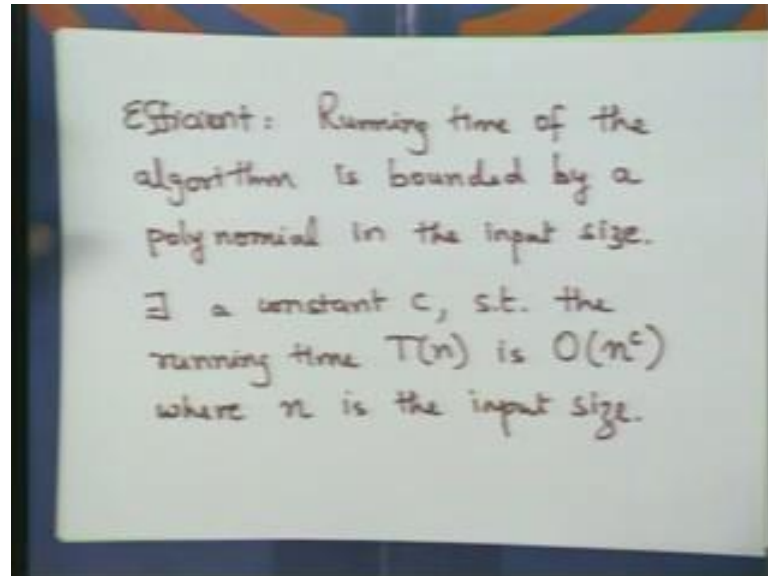 Efficient: Running time of the
algorithm is bounded by a
polynomial in the input size.
∃ a constant c, s.t. the
running time T(n) is O(n^c)
where n is the input size.